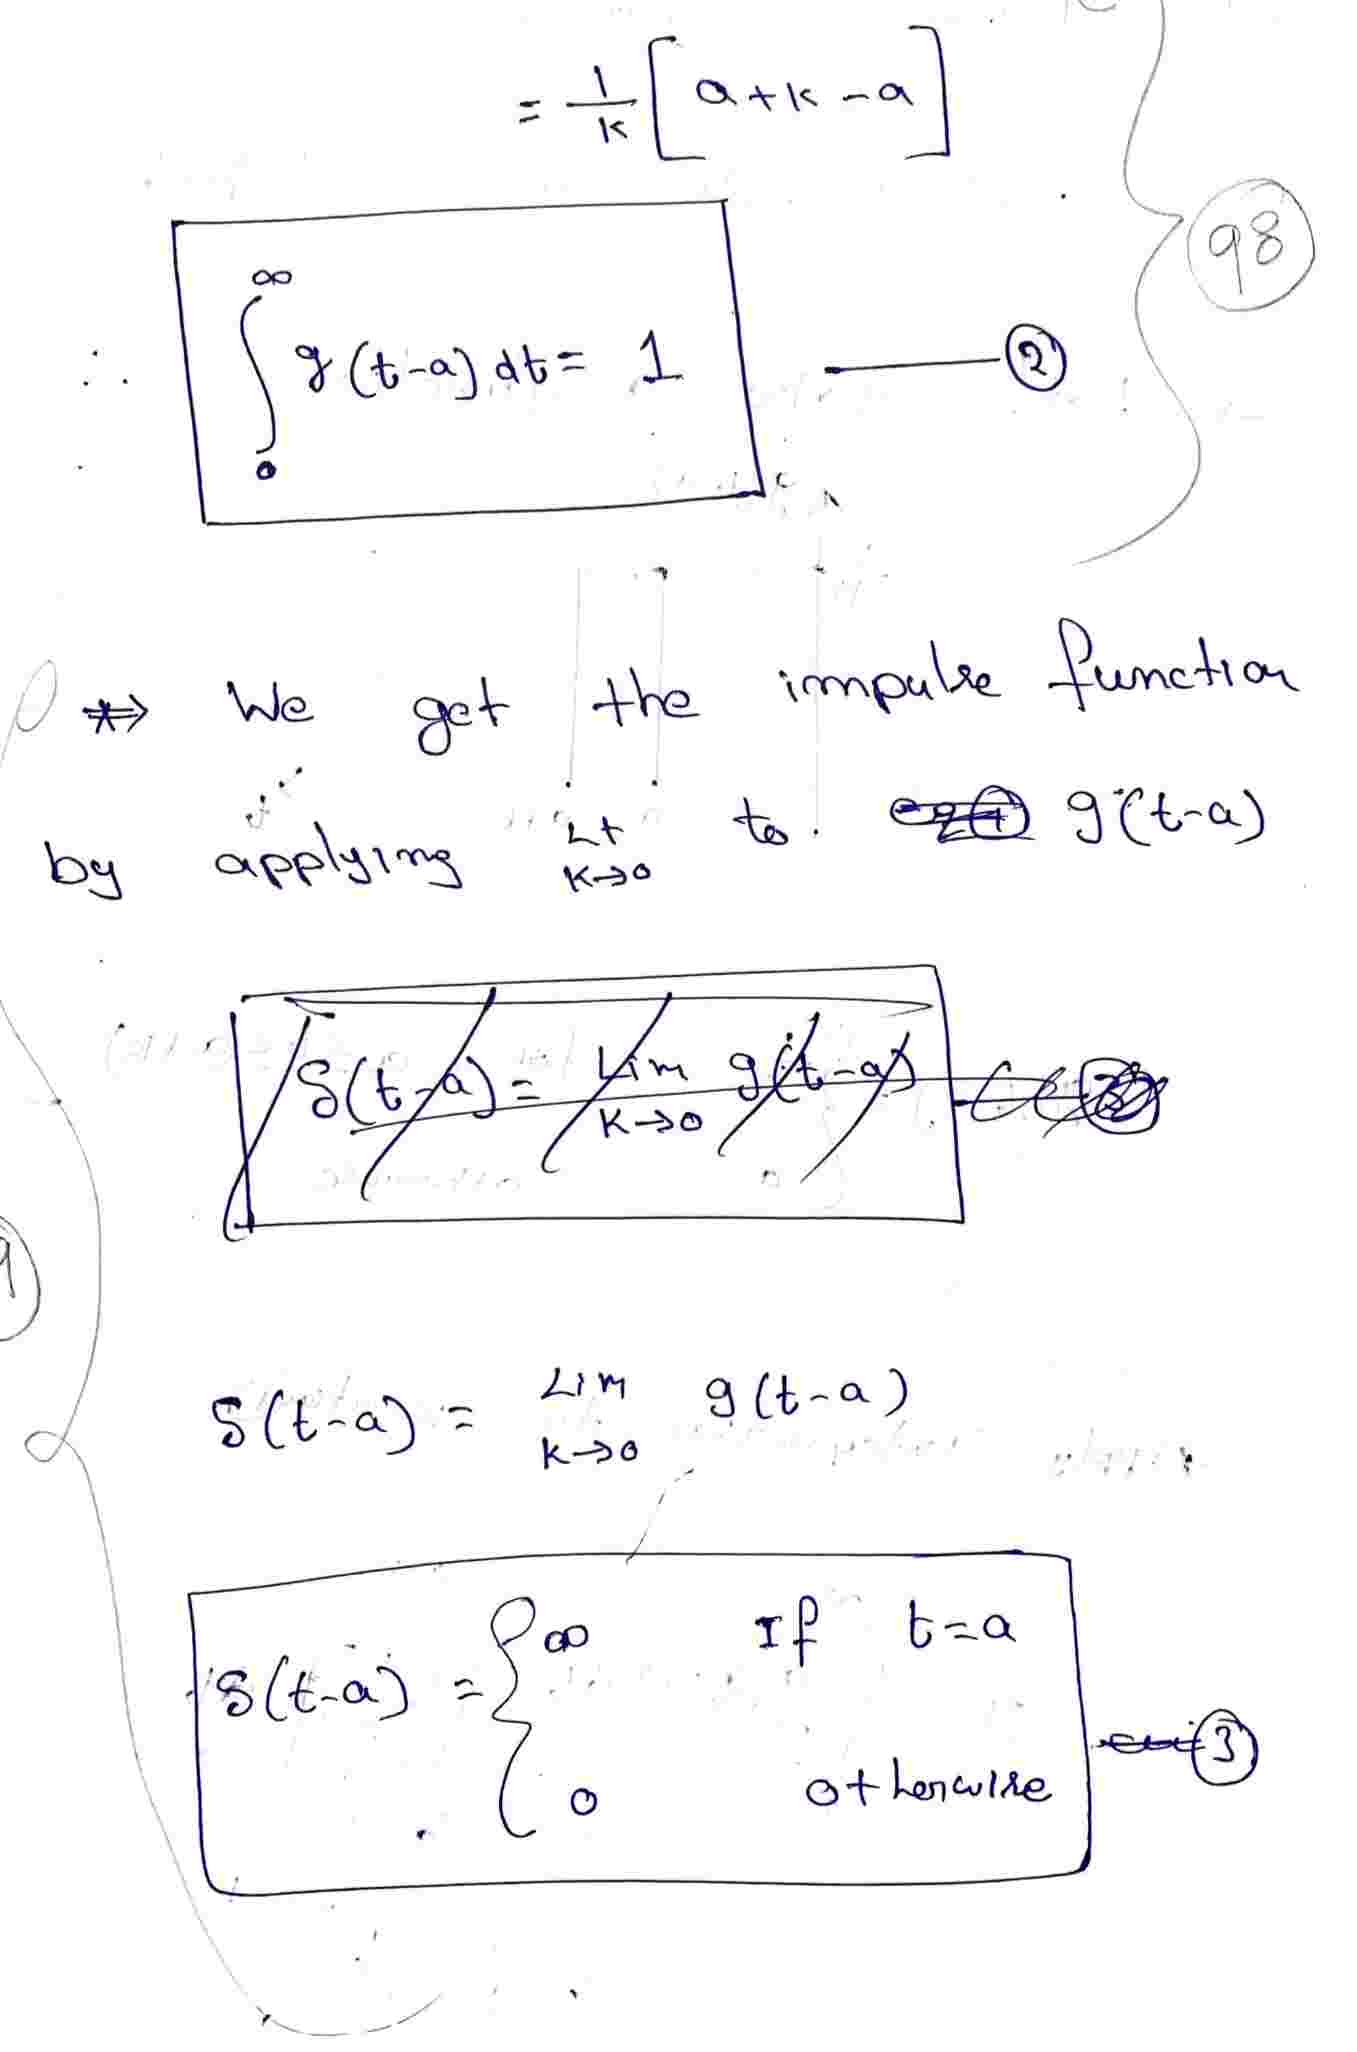 = 1/k [a+k-a]
98
∴ ∫₀^∞ g(t-a) dt = 1 —— ②
⇒ We get the impulse function
by applying Lt K→0 to g(t-a)
δ(t-a) = Lim K→0 g(t-a)
δ(t-a) = Lim K→0 g(t-a)
δ(t-a) = { ∞ If t=a
0 otherwise — ③